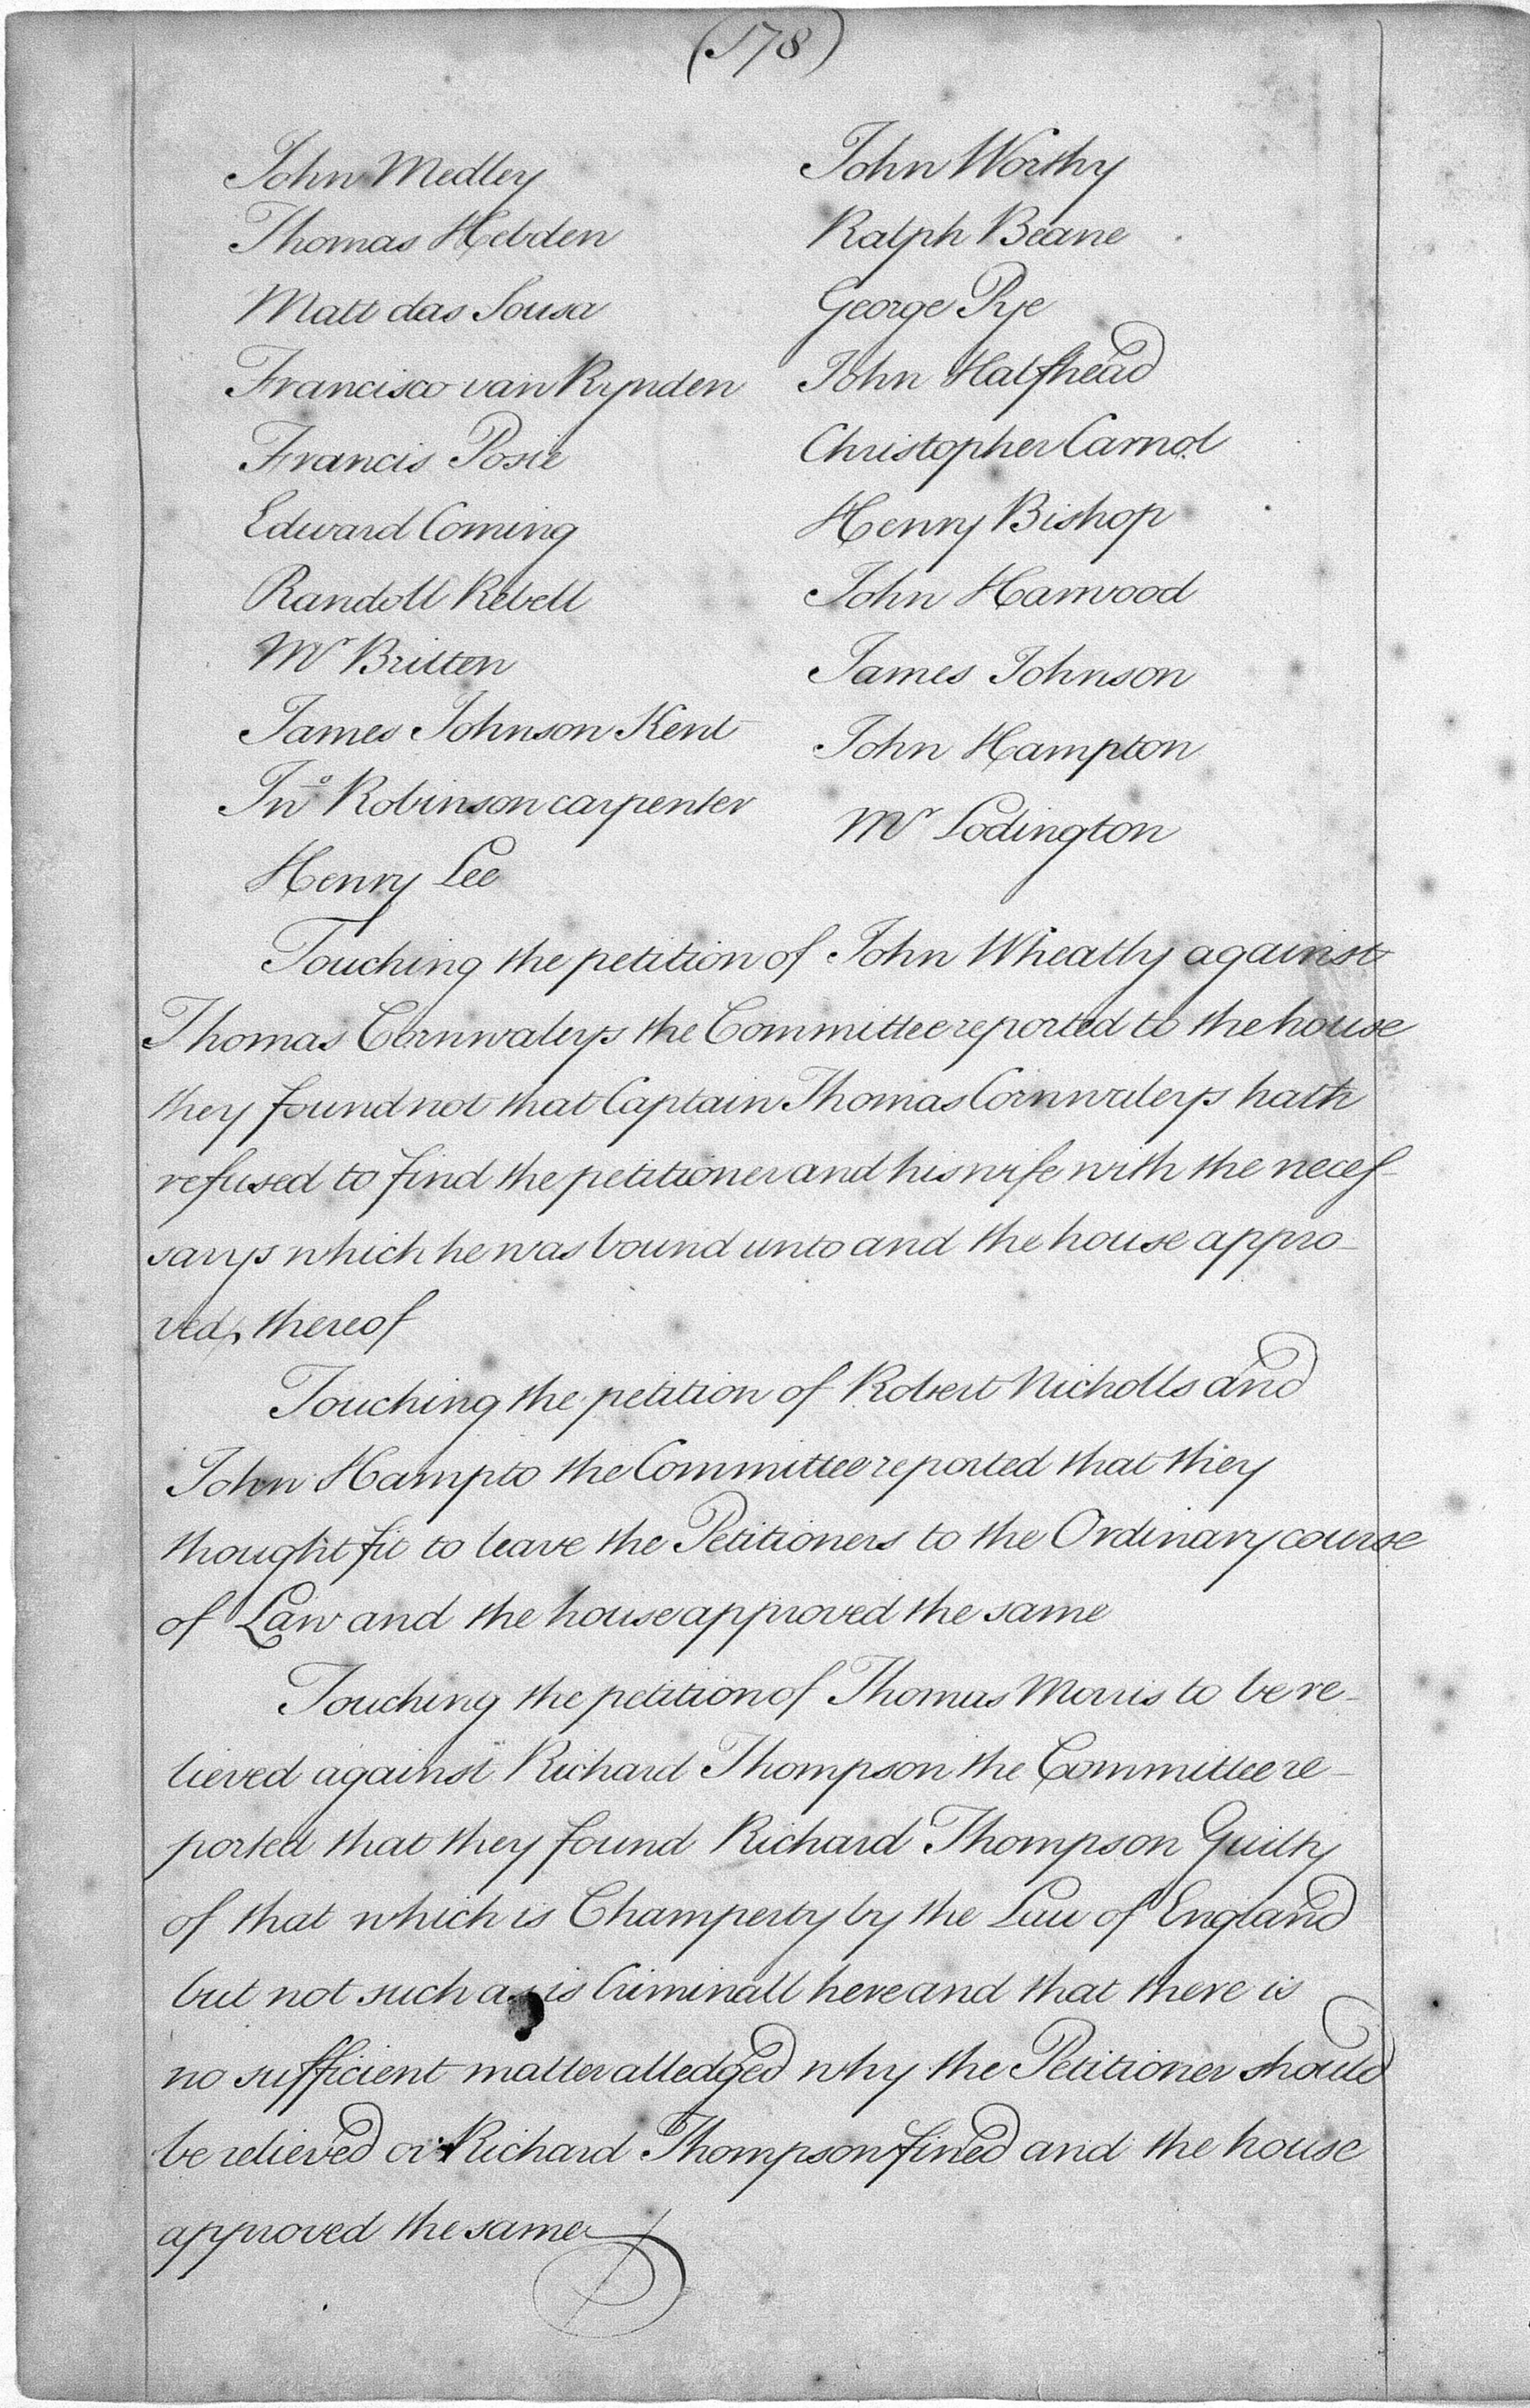 (178)
John Medley
Thomas Hebden
Matt das Sousa
Francisco van Rynden
Francis Posie
Edward Coming
Randoll Rebell
Mr Britten
James Johnson Kent
Jno Robinson carpenter
Henry Lee
John Worthy
Ralph Beane
George Pye
John Halfhead
Christopher Carnol
Henry Bishop
John Harwood
James Johnson
John Hampton
Mr Lodington
Touching the petition of John Wheatly against
Thomas Cornwaleys the Committee reported to the house
they found not that Captain Thomas Cornwaleys hath
refused to find the petitioner and his wife with the neces-
sarys which he was bound unto and the house appro-
ved, thereof
Touching the petition of Robert Nicholls and
John Hampto the Committee reported that they
thought fit to leave the Petitioners to the Ordinary course
of Law and the house approved the same
Touching the petition of Thomas Morris to be re-
lieved against Richard Thompson the Committee re-
ported that they found Richard Thompson Guilty
of that which is Champerty by the Law of England
but not such as is Criminall here and that there is
no sufficient matter alledged why the Petitioner should
be relieved or Richard Thompson fined and the house
approved the same